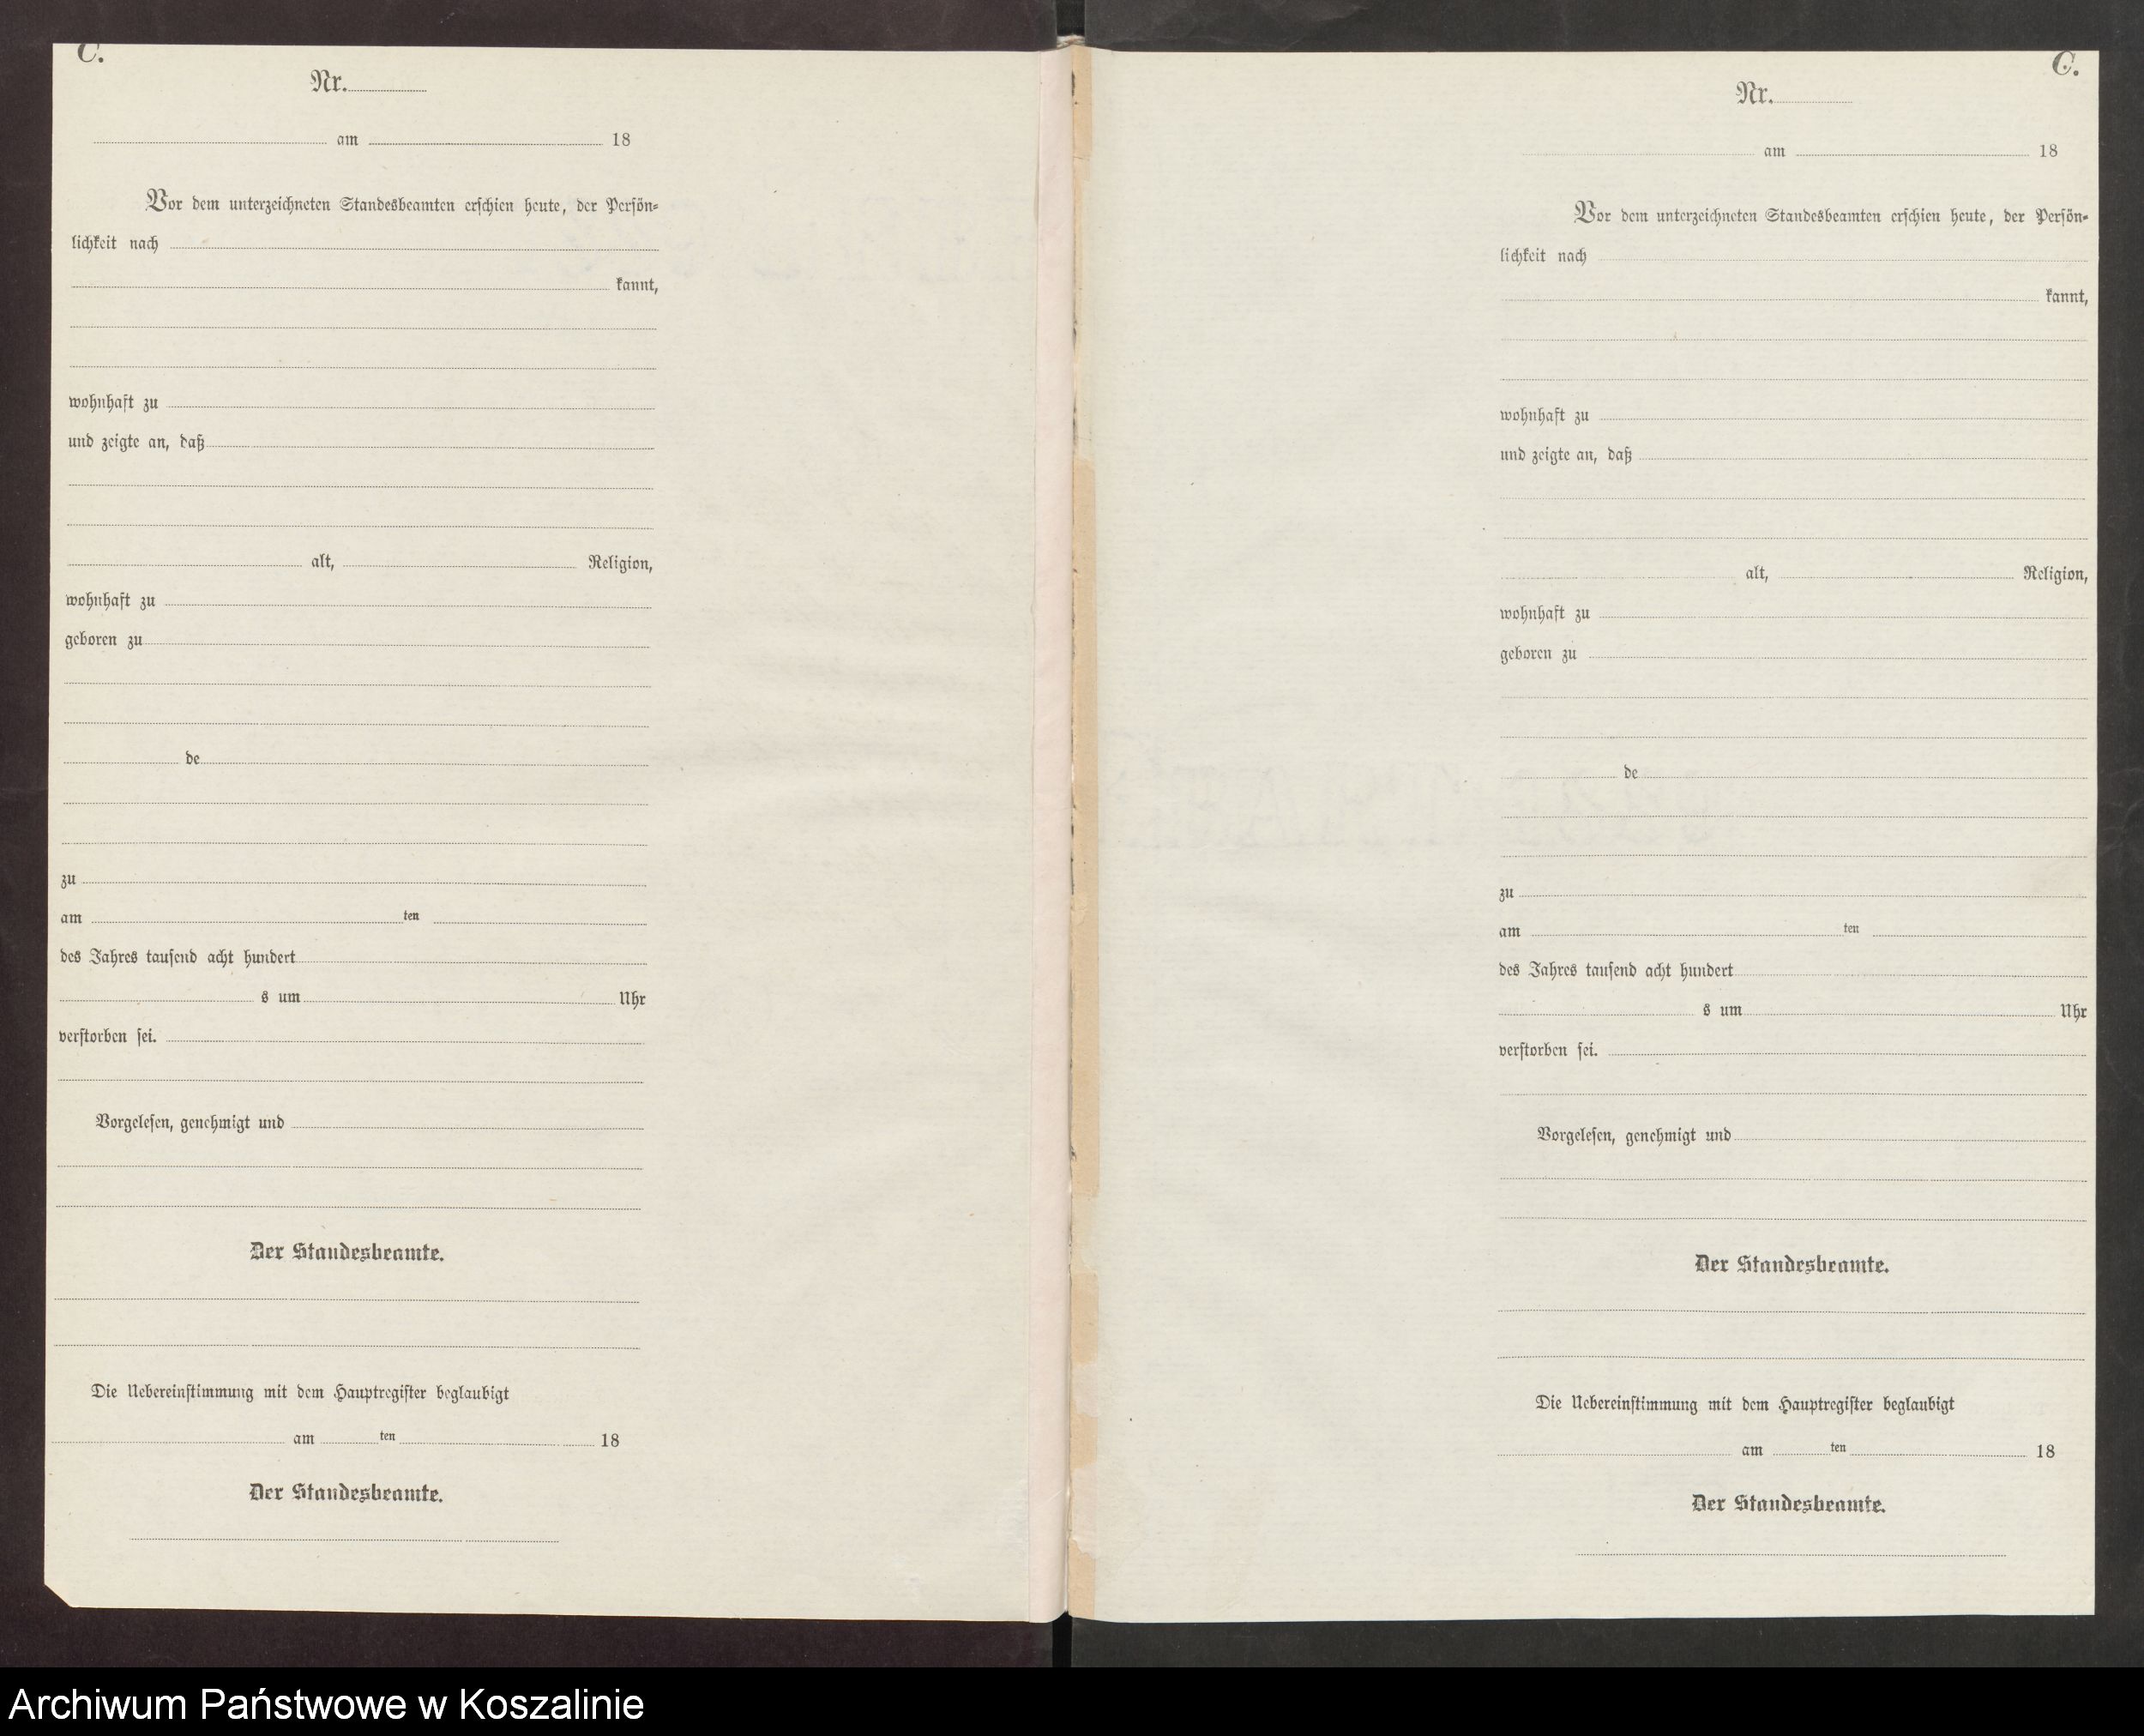 C.
Nr.
am 18
Vor dem unterzeichneten Standesbeamten erschien heute, der Persön-
lichkeit nach
kannt,
wohnhaft zu
und zeigte an, daß
alt, Religion,
wohnhaft zu
geboren zu
de
zu
am ten
des Jahres tausend acht hundert
s um Uhr
verstorben sei.
Vorgelesen, genehmigt und
Der Standesbeamte.
Die Uebereinstimmung mit dem Hauptregister beglaubigt
am ten 18
Der Standesbeamte.
C.
Nr.
am 18
Vor dem unterzeichneten Standesbeamten erschien heute, der Persön-
lichkeit nach
kannt,
wohnhaft zu
und zeigte an, daß
alt, Religion,
wohnhaft zu
geboren zu
de
zu
am ten
des Jahres tausend acht hundert
s um Uhr
verstorben sei.
Vorgelesen, genehmigt und
Der Standesbeamte.
Die Uebereinstimmung mit dem Hauptregister beglaubigt
am ten 18
Der Standesbeamte.
Archiwum Państwowe w Koszalinie